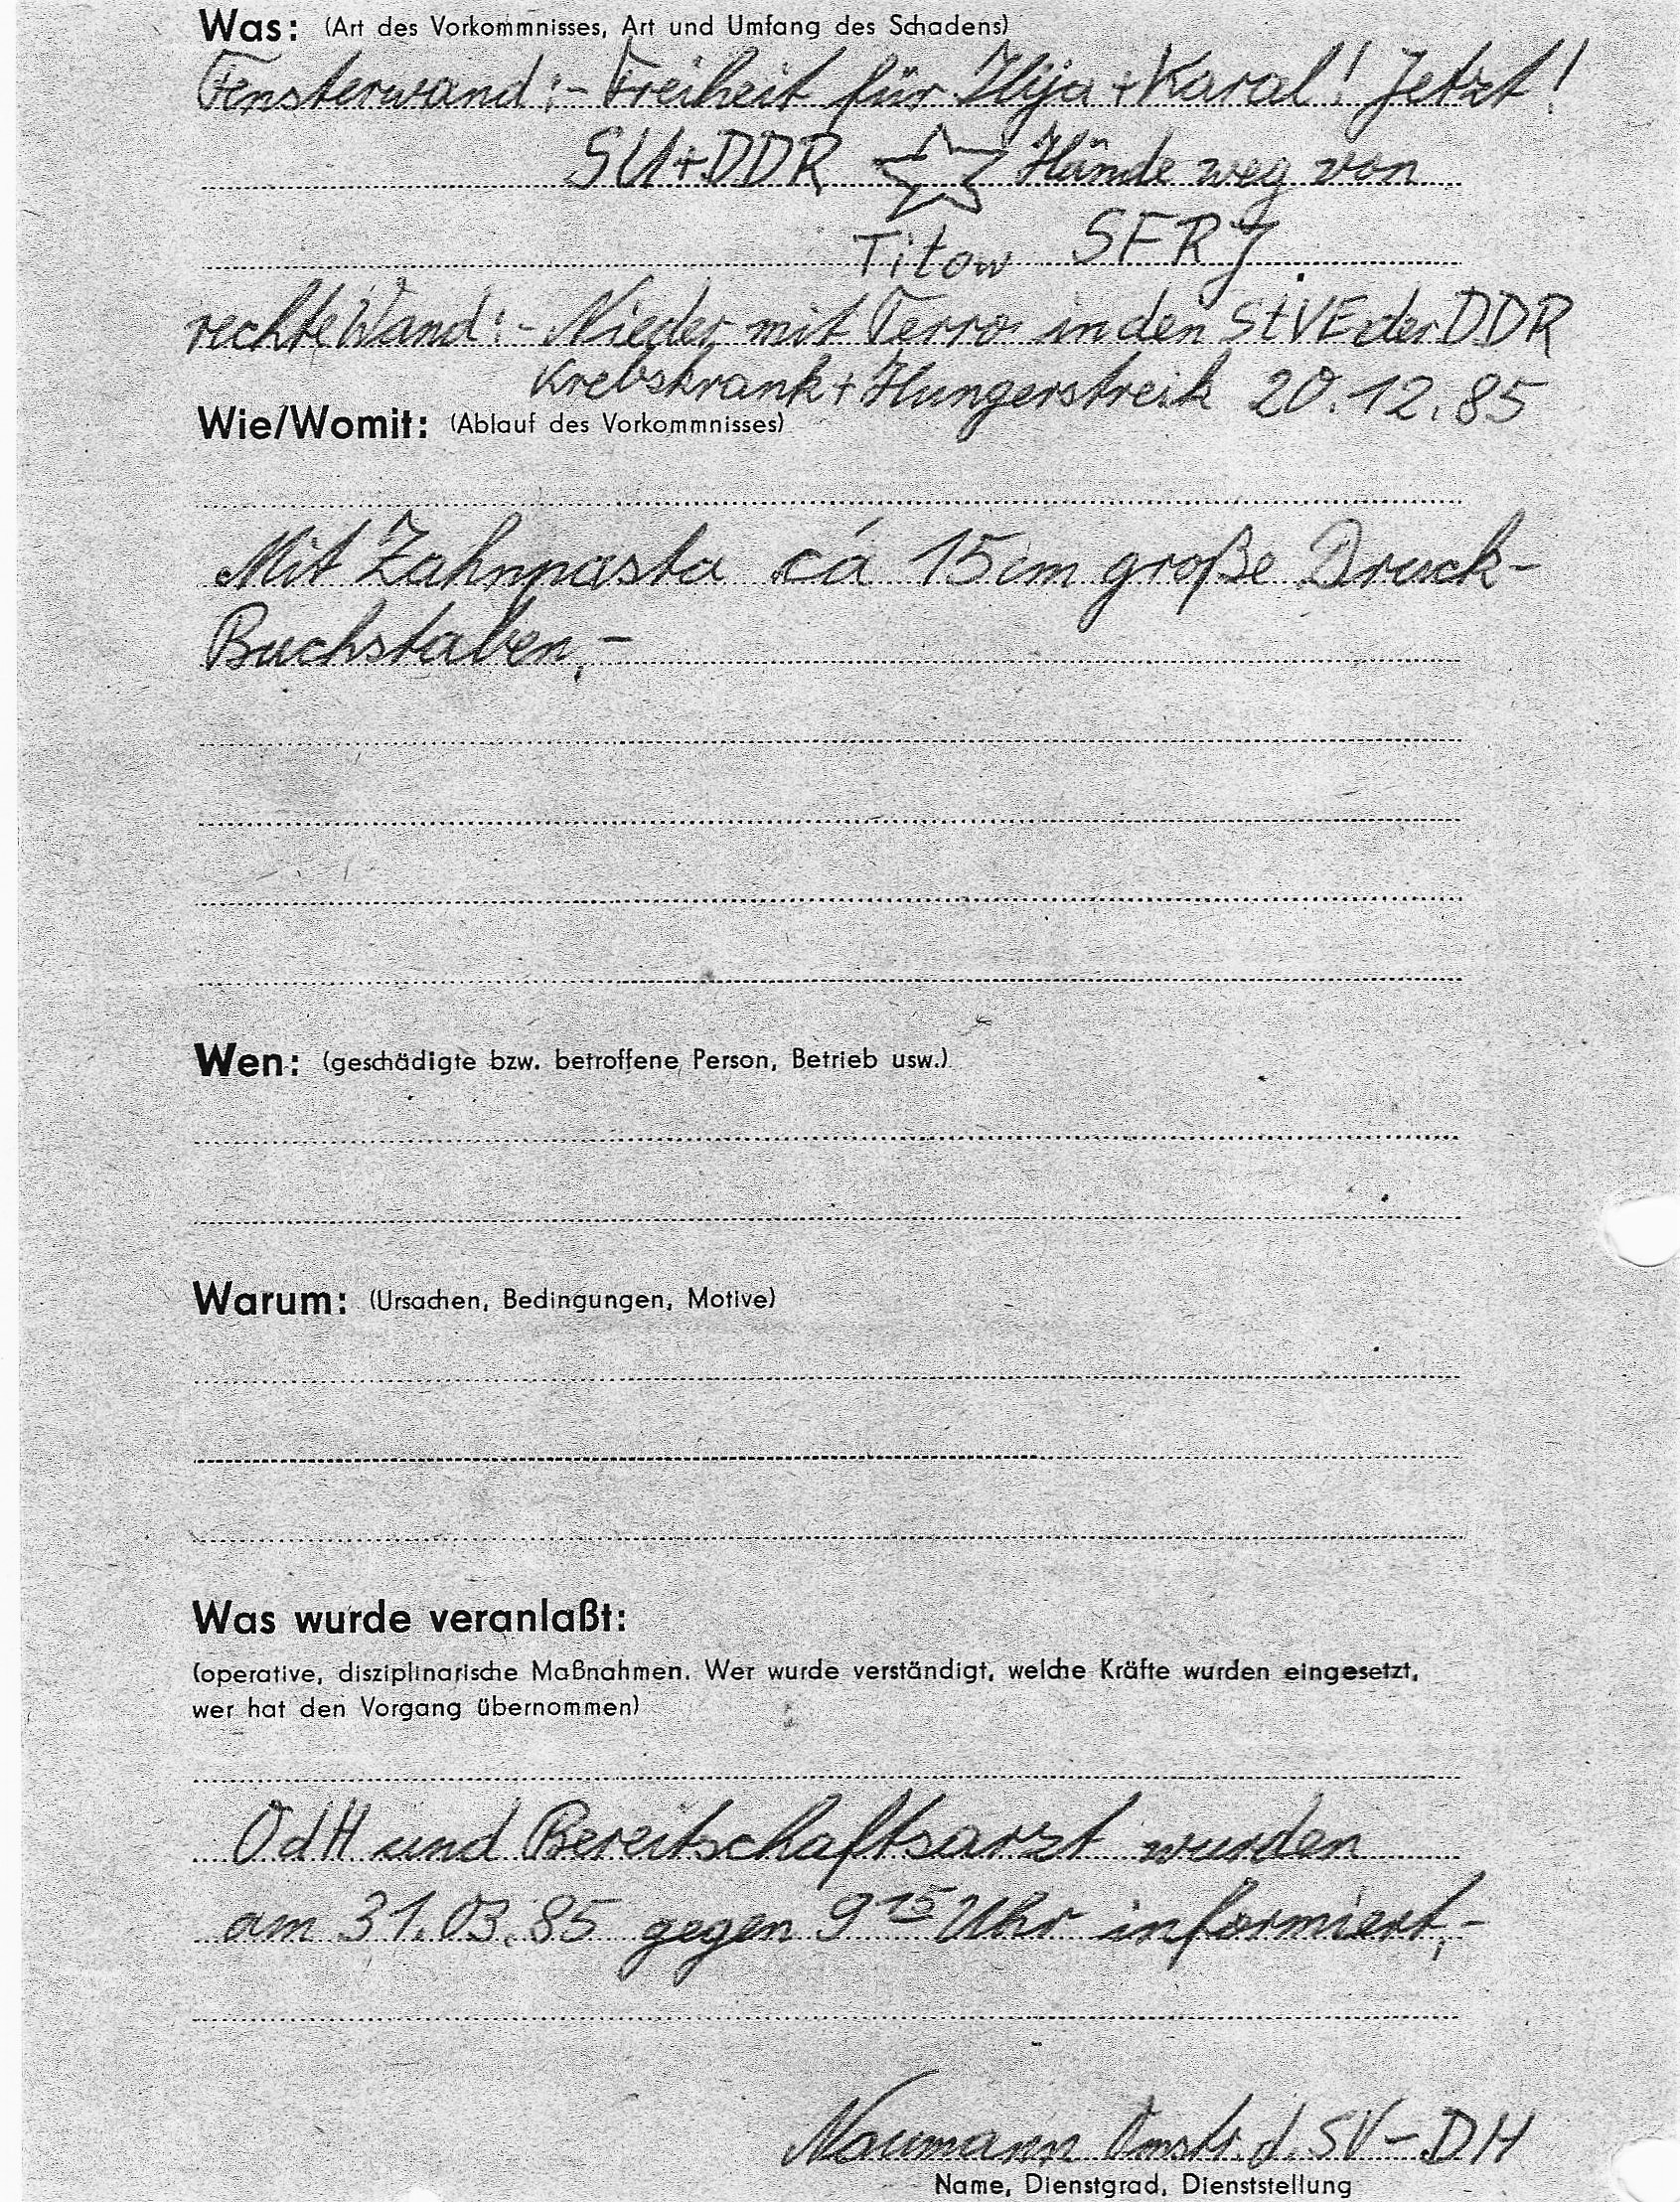 Was: (Art des Vorkommnisses, Art und Umfang des Schadens)
Fensterwand:- Freiheit für Ilija + Karal! Jetzt!
SU+DDR Hände weg von
Titow SFRJ.
rechte Wand:- Nieder mit Terro in den StVE der DDR
Krebskrank + Hungerstreik 20.12.85
Wie/Womit: (Ablauf des Vorkommnisses)
Mit Zahnpasta cá 15cm große Druck-
Buchstaben,-
Wen: (geschädigte bzw. betroffene Person, Betrieb usw.)
Warum: (Ursachen, Bedingungen, Motive)
Was wurde veranlaßt:
(operative, disziplinarische Maßnahmen. Wer wurde verständigt, welche Kräfte wurden eingesetzt,
wer hat den Vorgang übernommen)
OdH und Bereitschaftsarzt wurden
am 31.03.85 gegen 9 15 Uhr informiert,-
Naumann Omstr. d. SV-DH
Name, Dienstgrad, Dienststellung